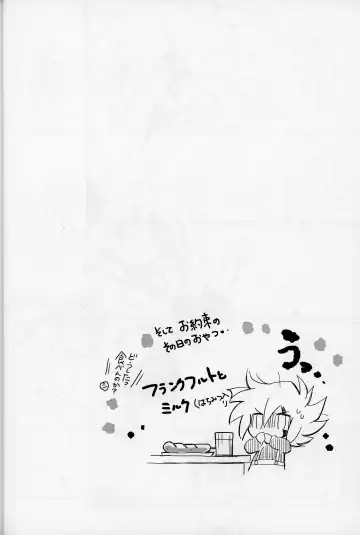 そして お約束の
その日のおやつ・・
うっ・・
どうしたっ
食べんのか?
フランクフルトと
ミルク(はちみつ入り)